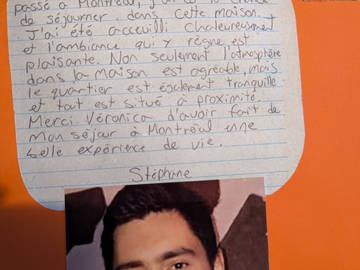 passé à Montréal, j'ai eu la chance
de séjourner dans cette maison.
J'ai été acceuilli chaleureusement
et l'ambiance qui y règne est
plaisante. Non seulement l'atmosphère
dans la maison est agréable, mais
le quartier est également tranquille
et tout est situé à proximité.
Merci Véronica d'avoir fait de
mon séjour à Montréal une
belle expérience de vie.
Stéphane